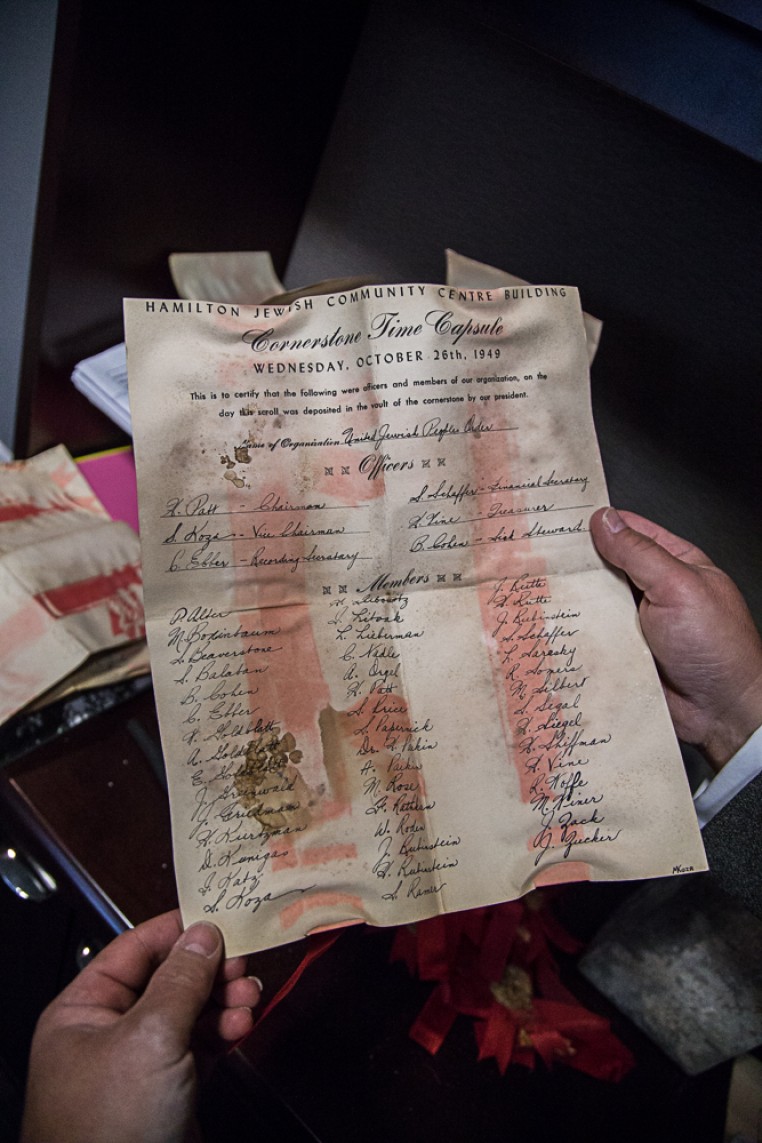 HAMILTON JEWISH COMMUNITY CENTRE BUILDING
Cornerstone Time Capsule
WEDNESDAY, OCTOBER 26th, 1949
This is to certify that the following were officers and members of our organization, on the
day this scroll was deposited in the vault of the cornerstone by our president.
Name of Organization United Jewish Peoples Order
Officers
H. Patt - Chairman
S. Koza - Vice Chairman
C. Ebber - Recording Secretary
S. Schaffer - Financial Secretary
H. Vine - Treasurer
B. Cohen - Sick Steward
Members
P. Alter
M. Bodinbaum
S. Beaverstone
S. Balaban
B. Cohen
C. Ebber
Goldblatt
A. Goldblatt
E. Goldblatt
J. Greenwald
J. Friedman
H. Kurtzman
D. Kanigas
J. Katz
S. Koza
Leibovitz
J. Litvak
L. Lieberman
C. Nedle
A. Orgel
H. Patt
S. Price
S. Papernick
Dr. H. Paikin
A. Paikin
M. Rose
W. Roder
J. Rubinstein
H. Rubinstein
S. Raner
J. Ruthe
H. Ruthe
J. Rubinstein
S. Schaffer
L. Sarasky
R. Somers
M. Silbert
S. Segal
H. Siegel
H. Shiffman
H. Vine
R. Wolfe
M. Winer
J. Zack
J. Zucker
MKOZA